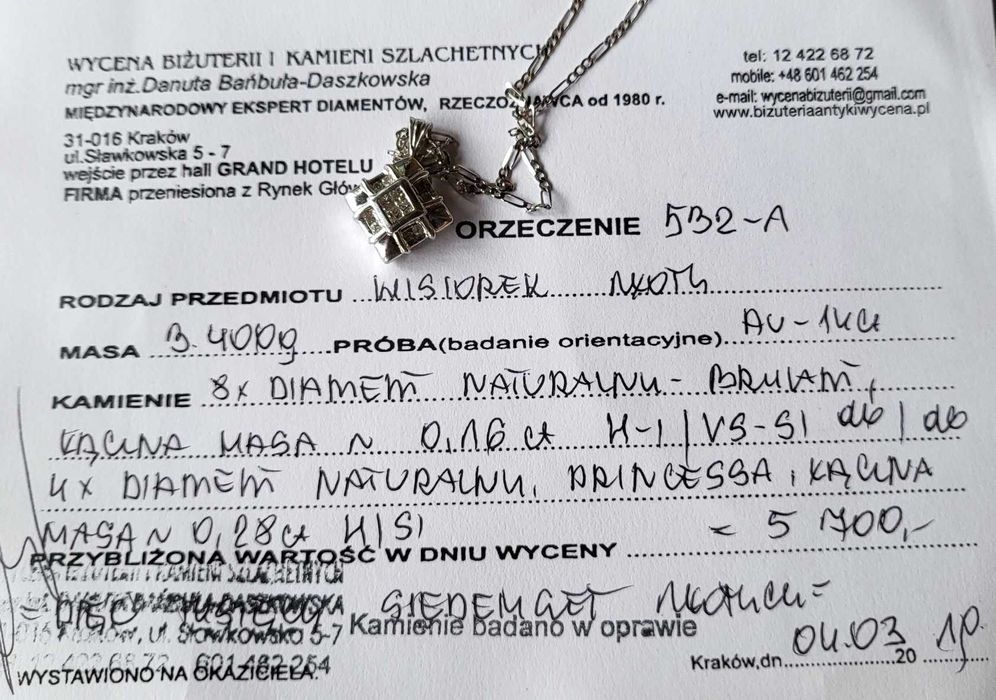 WYCENA BIŻUTERII I KAMIENI SZLACHETNYCH
mgr inż. Danuta Bańbuła-Daszkowska
MIĘDZYNARODOWY EKSPERT DIAMENTÓW, RZECZOZNAWCA od 1980 r.
31-016 Kraków
ul.Sławkowska 5 - 7
wejście przez hall GRAND HOTELU
FIRMA przeniesiona z Rynek Głów
tel: 12 422 68 72
mobile: +48 601 462 254
e-mail: wycenabizuterii@gmail.com
www.bizuteriaantykiwycena.pl
ORZECZENIE 532-A
RODZAJ PRZEDMIOTU WISIOREK ZŁOTY
MASA 3.400g PRÓBA(badanie orientacyjne) AU-14ct
KAMIENIE 8x DIAMENT NATURALNY - BRYLANT,
ŁĄCZNA MASA ~ 0,16 ct H-I/VS-SI db/db
4x DIAMENT NATURALNY, PRINCESSA, ŁĄCZNA
MASA ~ 0,28ct H/SI = 5 700,-
PRZYBLIŻONA WARTOŚĆ W DNIU WYCENY
= PIĘĆ TYSIĘCY SIEDEMSET ZŁOTYCH =
Sławkowska 5-7
12 422 68 72 601 462 254
Kamienie badano w oprawie
WYSTAWIONO NA OKAZICIELA.
Kraków,dn 04.03 20 19.